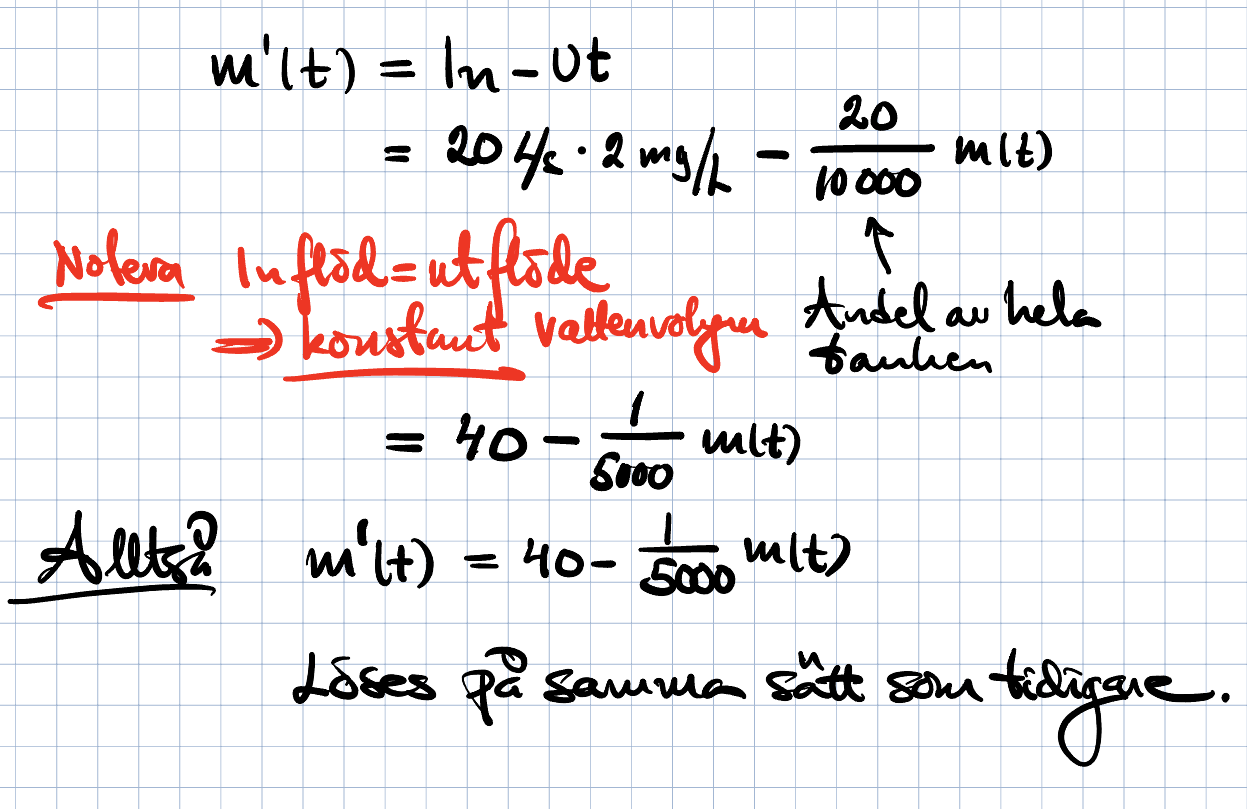 m'(t) = In - Ut
= 20 L/s · 2 mg/L - 20/10 000 m(t)
Notera Inflöd = utflöde
⇒ konstant vattenvolym
↑
Andel av hela
tanken
= 40 - 1/5000 m(t)
Alltså m'(t) = 40 - 1/5000 m(t)
Löses på samma sätt som tidigare.